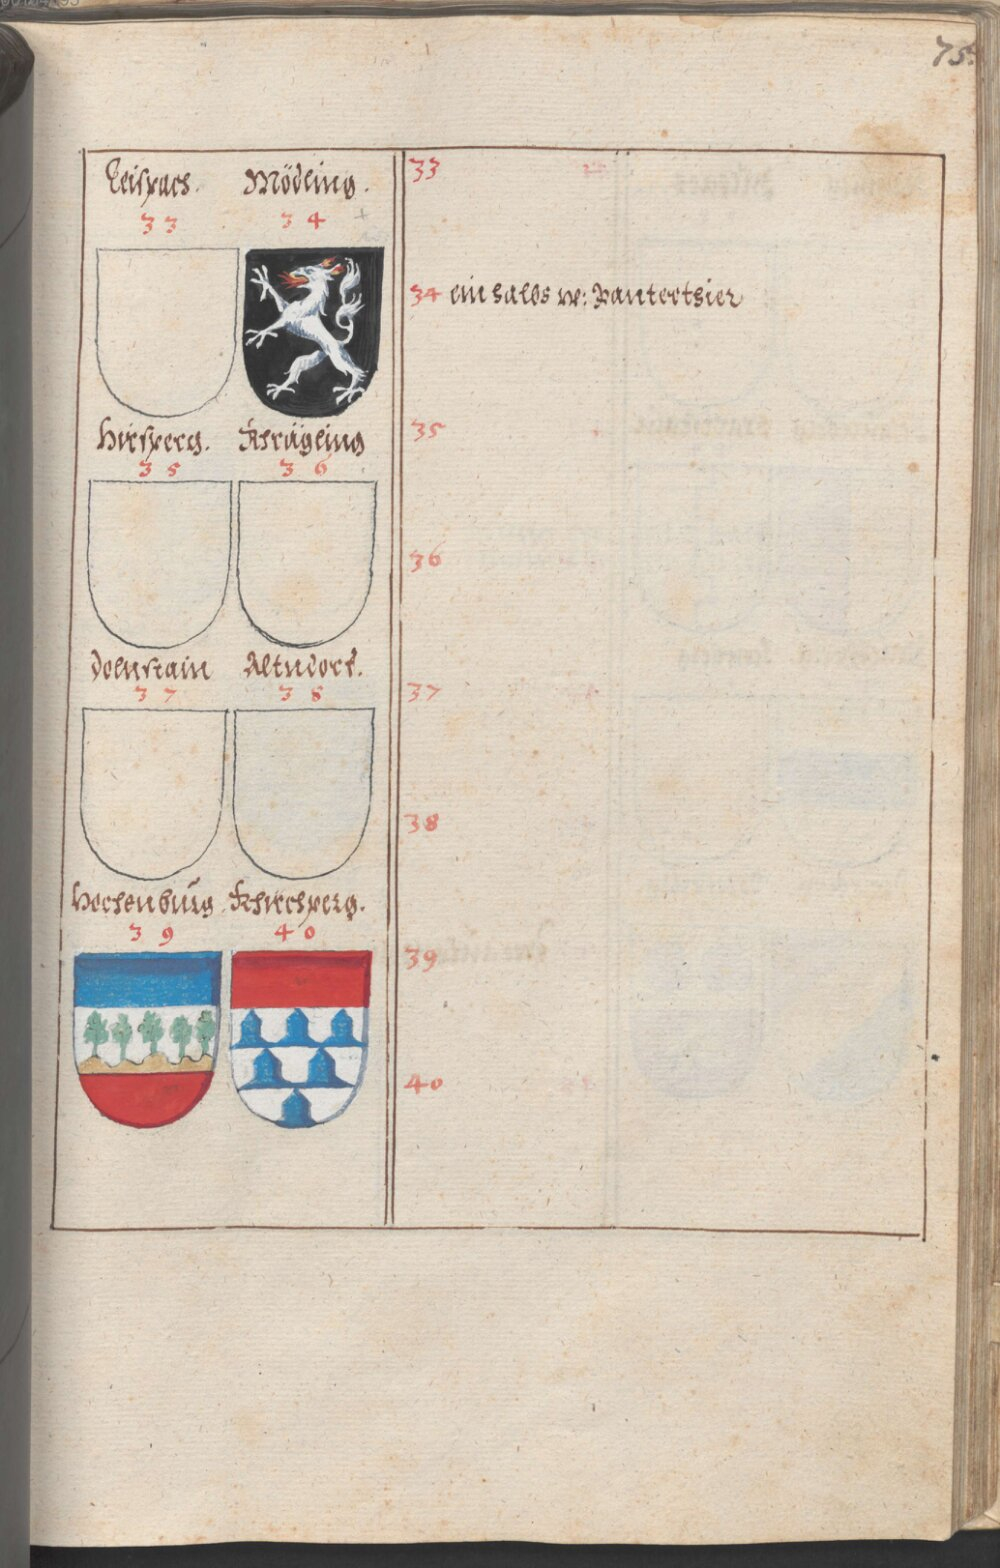 75.
Leispach Mödling.
33 34
Hirsperg. Khrägling
35 36
Dolnstain Altndorf.
37 38
Hochenburg Khirchperg.
39 40
33
34 ein halbs w: Panterthier
35
36
37
38
39
40